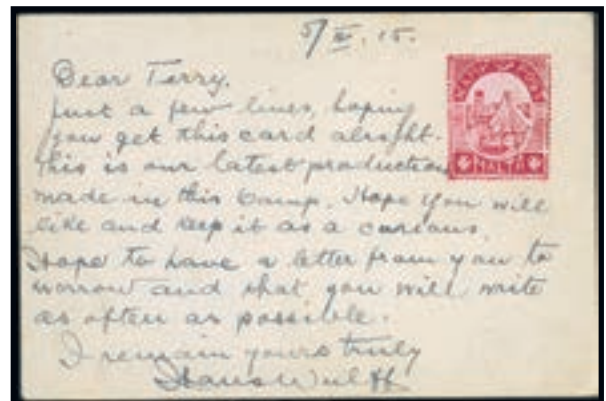 5/III.15.
Dear Terry.
Just a few lines, hoping
you get this card alright.
This is our latest production
made in this Camp. Hope you will
like and keep it as a curious.
Hope to have a letter from you to
morrow and that you will write
as often as possible.
I remain yours truly
Hans Wulff
CAMP POST
MALTA